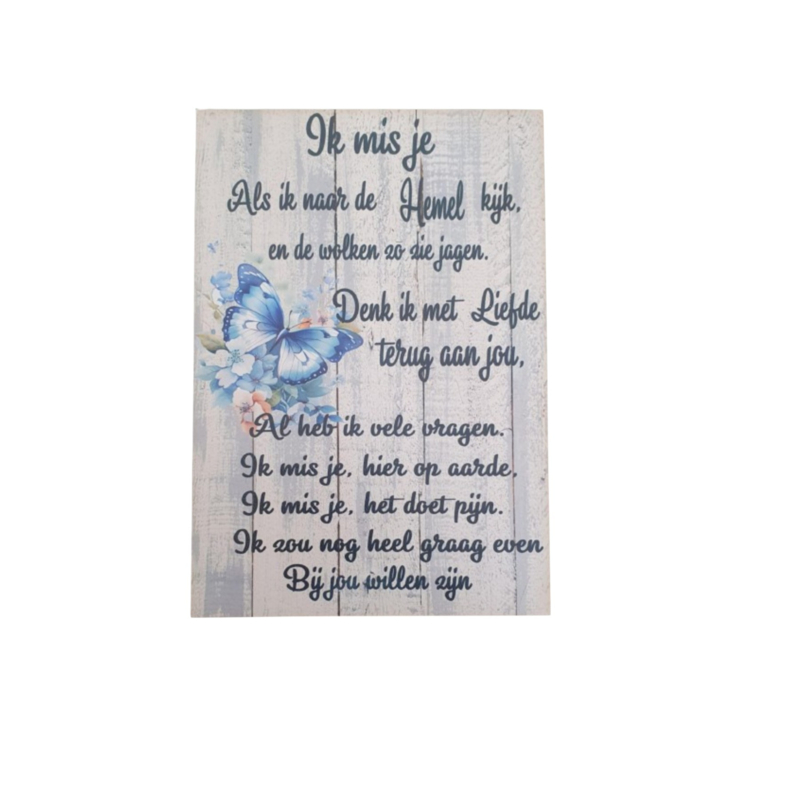 Ik mis je
Als ik naar de Hemel kijk,
en de wolken zo zie jagen.
Denk ik met Liefde
terug aan jou,
Al heb ik vele vragen.
Ik mis je, hier op aarde,
Ik mis je, het doet pijn.
Ik zou nog heel graag even
Bij jou willen zijn